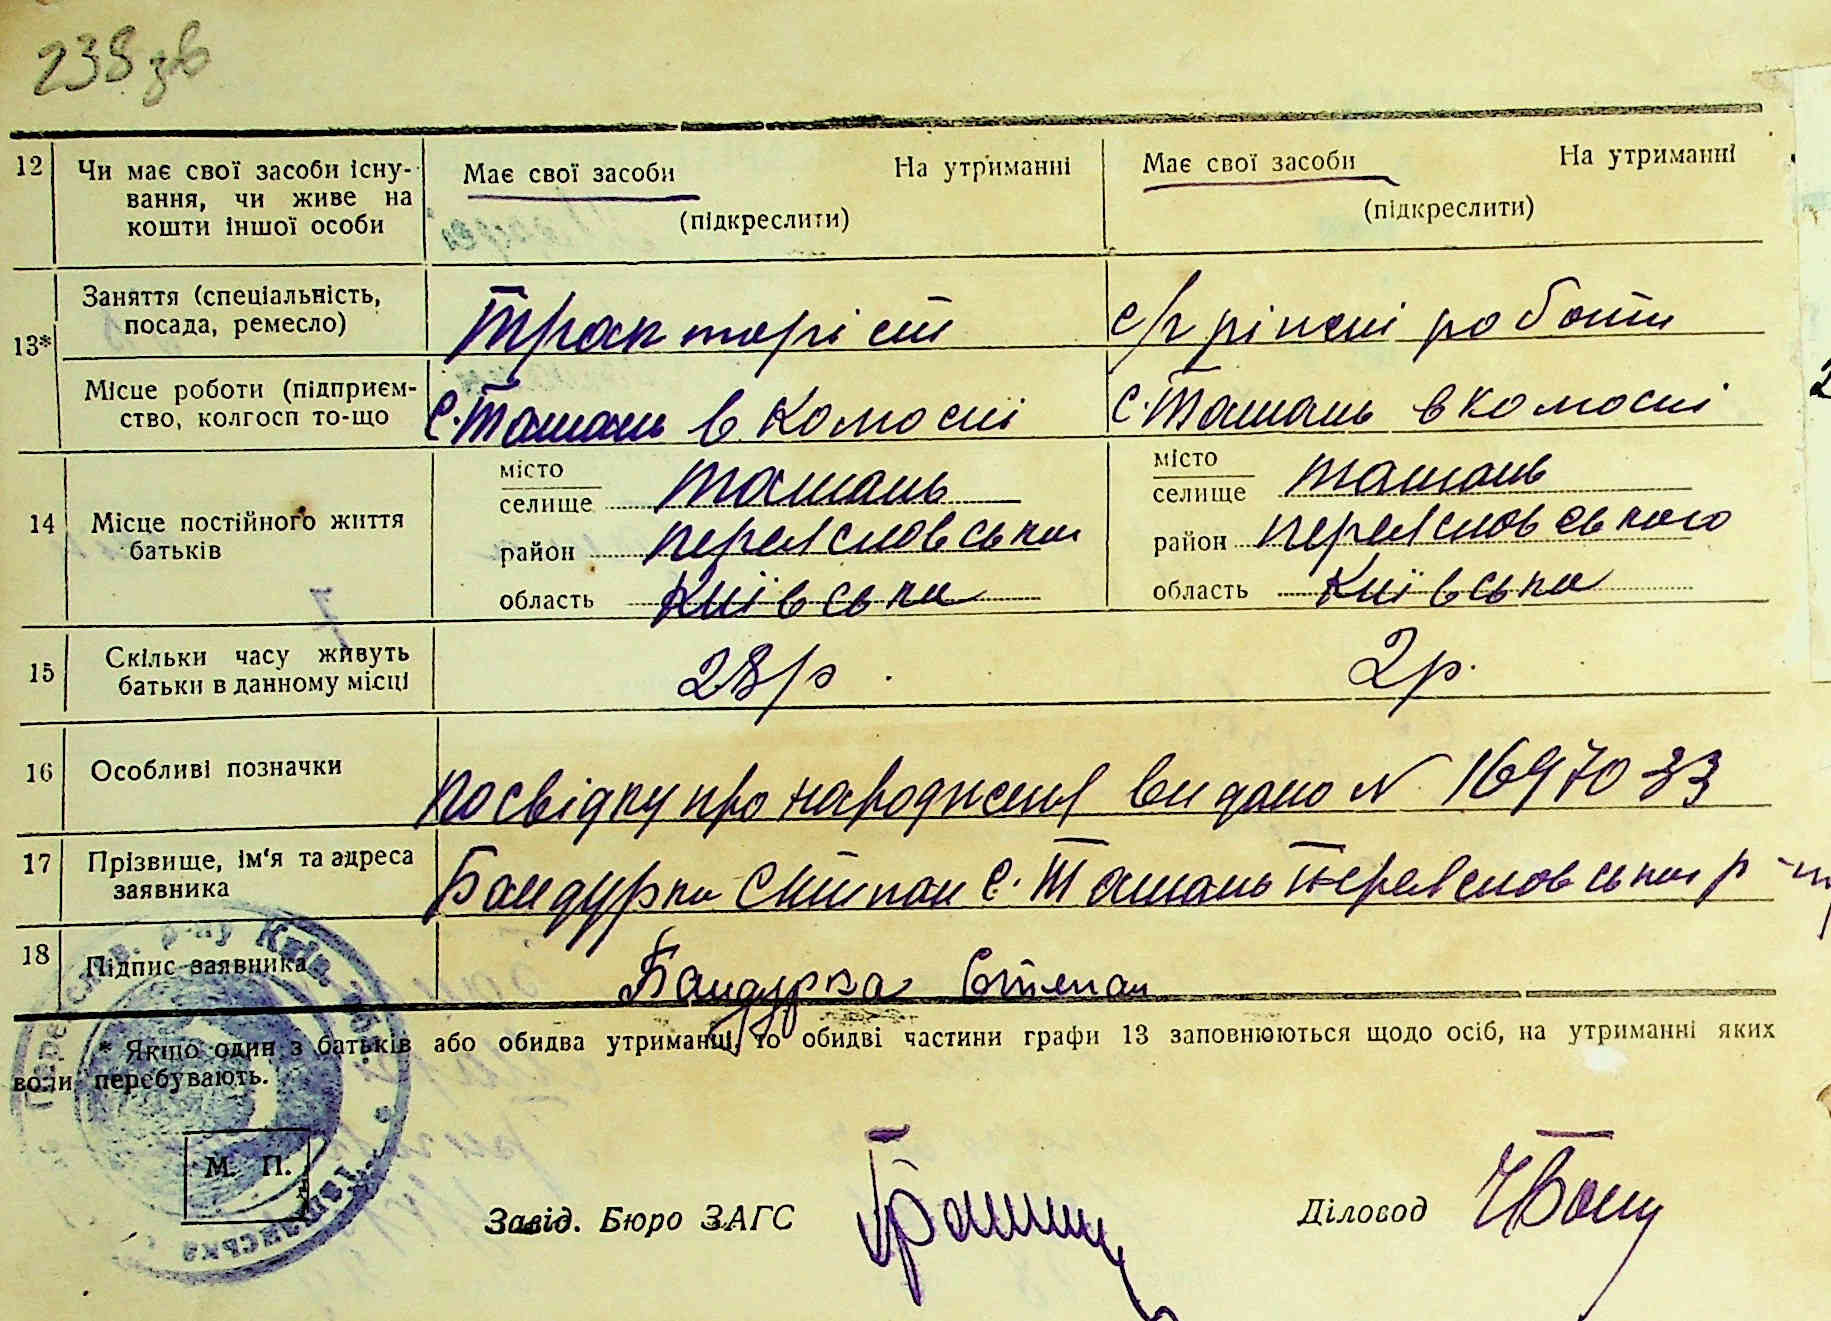 238 зв
12 Чи має свої засоби існу- Має свої засоби На утриманні Має свої засоби На утриманні
вання, чи живе на (підкреслити) (підкреслити)
кошти іншої особи
13* Заняття (спеціальність, Тракторіст с/г ріжні роботи
посада, ремесло)
Місце роботи (підприєм- с. Ташань в колгоспі с. Ташань в колгоспі
ство, колгосп то-що
14 Місце постійного життя батьків
місто селище Ташань місто селище Ташань
район переяславськ район переяславського
область Київська область Київська
15 Скільки часу живуть 28 р 2 р.
батьки в данному місці
16 Особливі позначки Посвідку про народженя видано N 1697033
17 Прізвище, ім'я та адреса Бандурка Степан с. Ташань Переяславськ р-
заявника
18 Підпис заявника Бандурка Степан
* Якщо один з батьків або обидва утриманці, то обидві частини графи 13 заповнюються щодо осіб, на утриманні яких
вони перебувають.
М. П.
Завід. Бюро ЗАГС Діловод